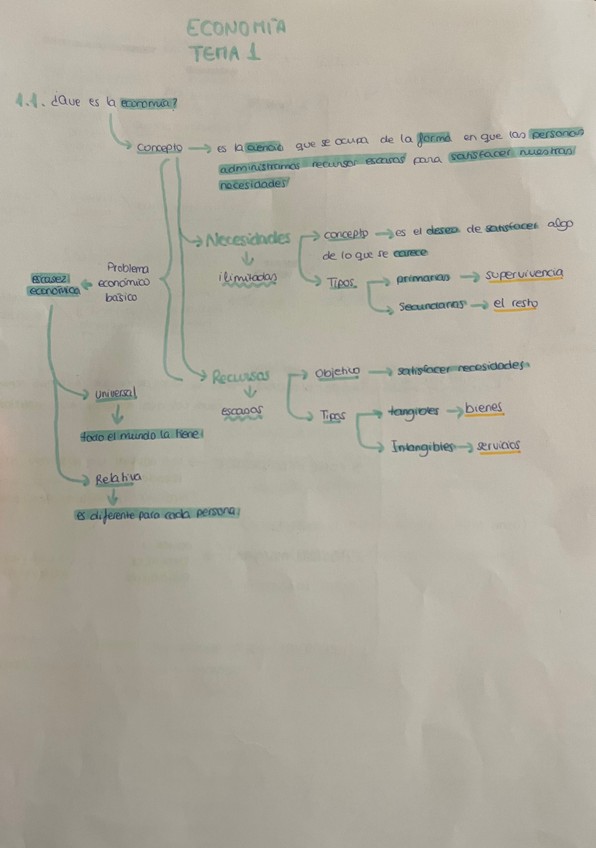 ECONOMÍA
TEMA 1
1.1. ¿Que es la economía?
Concepto → es la ciencia que se ocupa de la forma en que las personas
administramos recursos escasos para satisfacer nuestras
necesidades
Necesidades → concepto → es el deseo de satisfacer algo
de lo que se carece
ilimitadas
Tipos → primarias → supervivencia
Secundarias → el resto
Problema
económico
básico
escasez
económica
Recursos → Objetivo → satisfacer necesidades
escasos
Tipos → tangibles → bienes
Intangibles → servicios
Universal
todo el mundo la tiene
Relativa
es diferente para cada persona